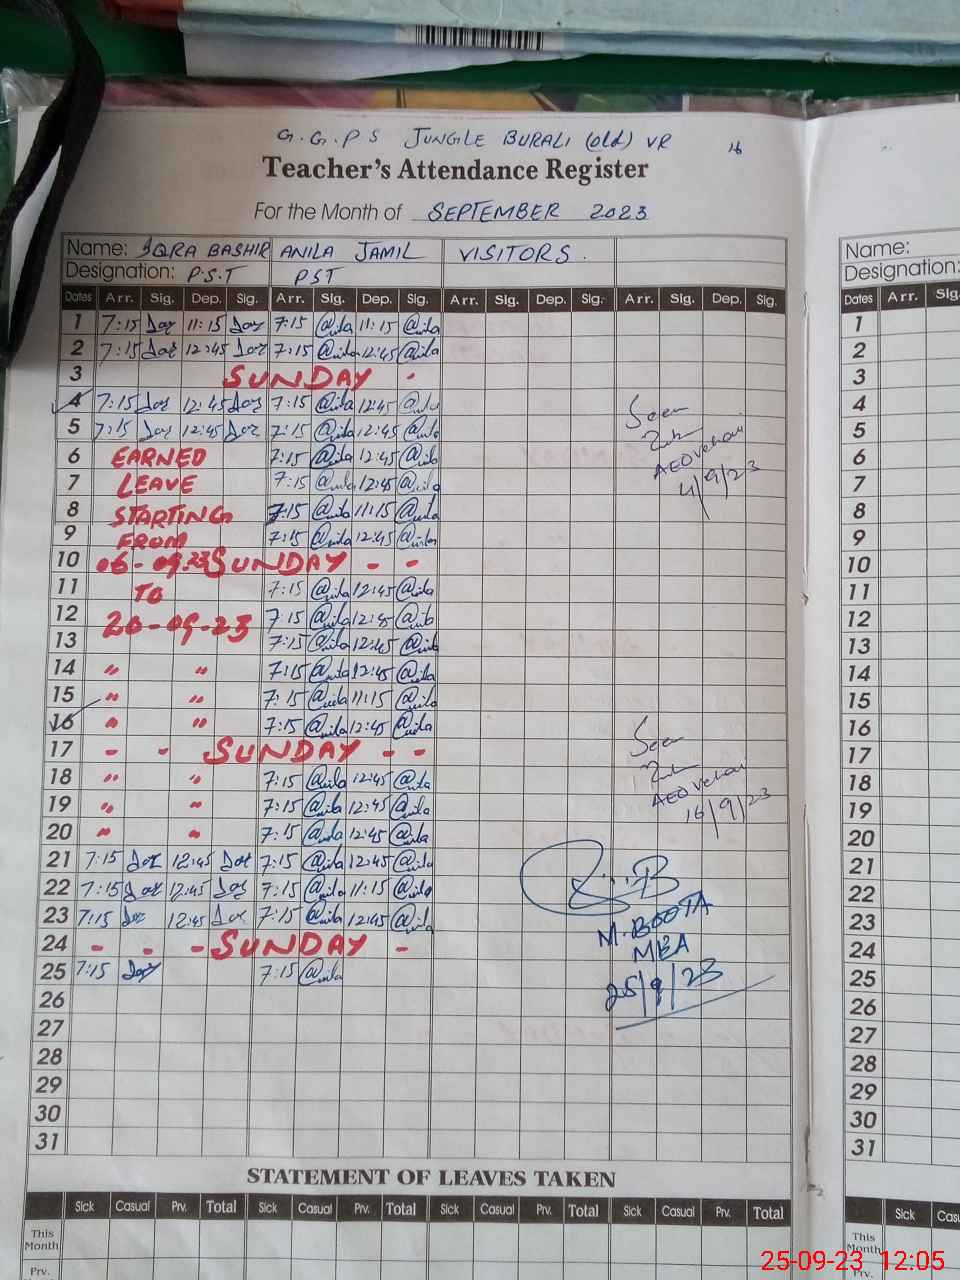 G.G.P S JUNGLE BURALI (old) VR 16
Teacher's Attendance Register
For the Month of SEPTEMBER 2023
Name: IQRA BASHIR ANILA JAMIL VISITORS.
Designation: P.S.T PST
Dates Arr. Sig. Dep. Sig. Arr. Sig. Dep. Sig. Arr. Sig. Dep. Sig. Arr. Sig. Dep. Sig.
1 7:15 11:15 7:15 @nila 11:15 @nila
2 7:15 12:45 7:15 @nila 12:45 @nila
3 SUNDAY -
4 7:15 12:45 7:15 @nila 12:45 @nila Seen
5 7:15 12:45 7:15 @nila 12:45 @nila
6 EARNED 7:15 @nila 12:45 @nila AEO Vehari
7 LEAVE 7:15 @nila 12:45 @nila 4/9/23
8 STARTING 7:15 @nila 11:15 @nila
9 FROM 7:15 @nila 12:45 @nila
10 06-09-23 SUNDAY - -
11 TO 7:15 @nila 12:45 @nila
12 20-09-23 7:15 @nila 12:45 @nila
13 7:15 @nila 12:45 @nila
14 " " 7:15 @nila 12:45 @nila
15 " " 7:15 @nila 11:15 @nila
16 " " 7:15 @nila 12:45 @nila
17 - - SUNDAY - - Seen
18 " " 7:15 @nila 12:45 @nila
19 " " 7:15 @nila 12:45 @nila AEO Vehari
20 " " 7:15 @nila 12:45 @nila 16/9/23
21 7:15 12:45 7:15 @nila 12:45 @nila
22 7:15 12:45 7:15 @nila 11:15 @nila
23 7:15 12:45 7:15 @nila 12:45 @nila M. BOOTA
24 - - - SUNDAY - MEA
25 7:15 7:15 @nila 25/9/23
26
27
28
29
30
31
STATEMENT OF LEAVES TAKEN
Sick Casual Prv. Total Sick Casual Prv. Total Sick Casual Prv. Total Sick Casual Prv. Total
This Month
Prv.
Name:
Designation:
Dates Arr.
1
2
3
4
5
6
7
8
9
10
11
12
13
14
15
16
17
18
19
20
21
22
23
24
25
26
27
28
29
30
31
Sick
This Month
Prv.
25-09-23 12:05